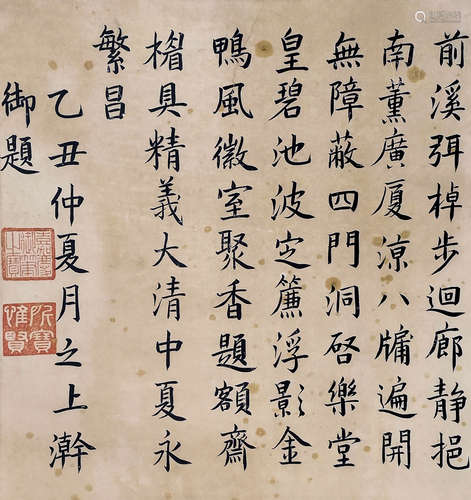 前溪弭棹步迴廊静挹
南薰廣厦涼八牖遍開
無障蔽四門洞啓樂堂
皇碧池波定簾浮影金
鴨風微室聚香題額齋
楣具精義大清中夏永
繁昌
乙丑仲夏月之上澣
御題
嘉慶御筆之寶
所寶惟賢